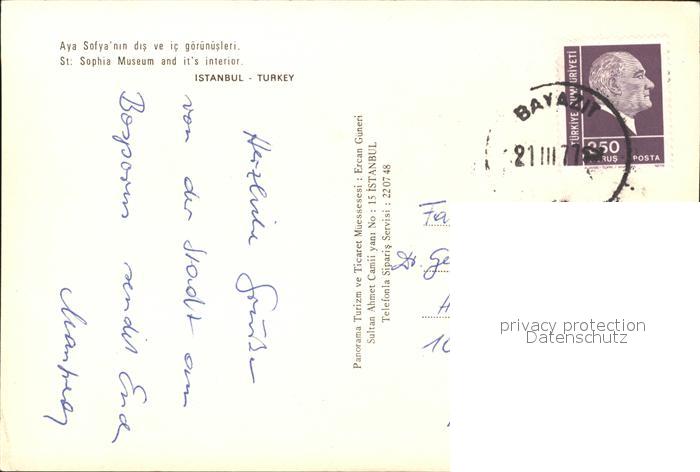 Aya Sofya'nın dış ve iç görünüşleri.
St: Sophia Museum and it's interior.
ISTANBUL - TURKEY
Herzliche Grüße
von der Stadt am
Bosporus sendet Euch
Manfred
Panorama Turizm ve Ticaret Muessesesi : Ercan Güneri
Sultan Ahmet Camii yanı No : 15 İSTANBUL
Telefonla Sipariş Servisi : 22 07 48
TÜRKİYE CUMHURİYETİ
250
KURUŞ POSTA
BAYAZIT
21 III 77
Fa
Dr. Ge
H
10
privacy protection
Datenschutz